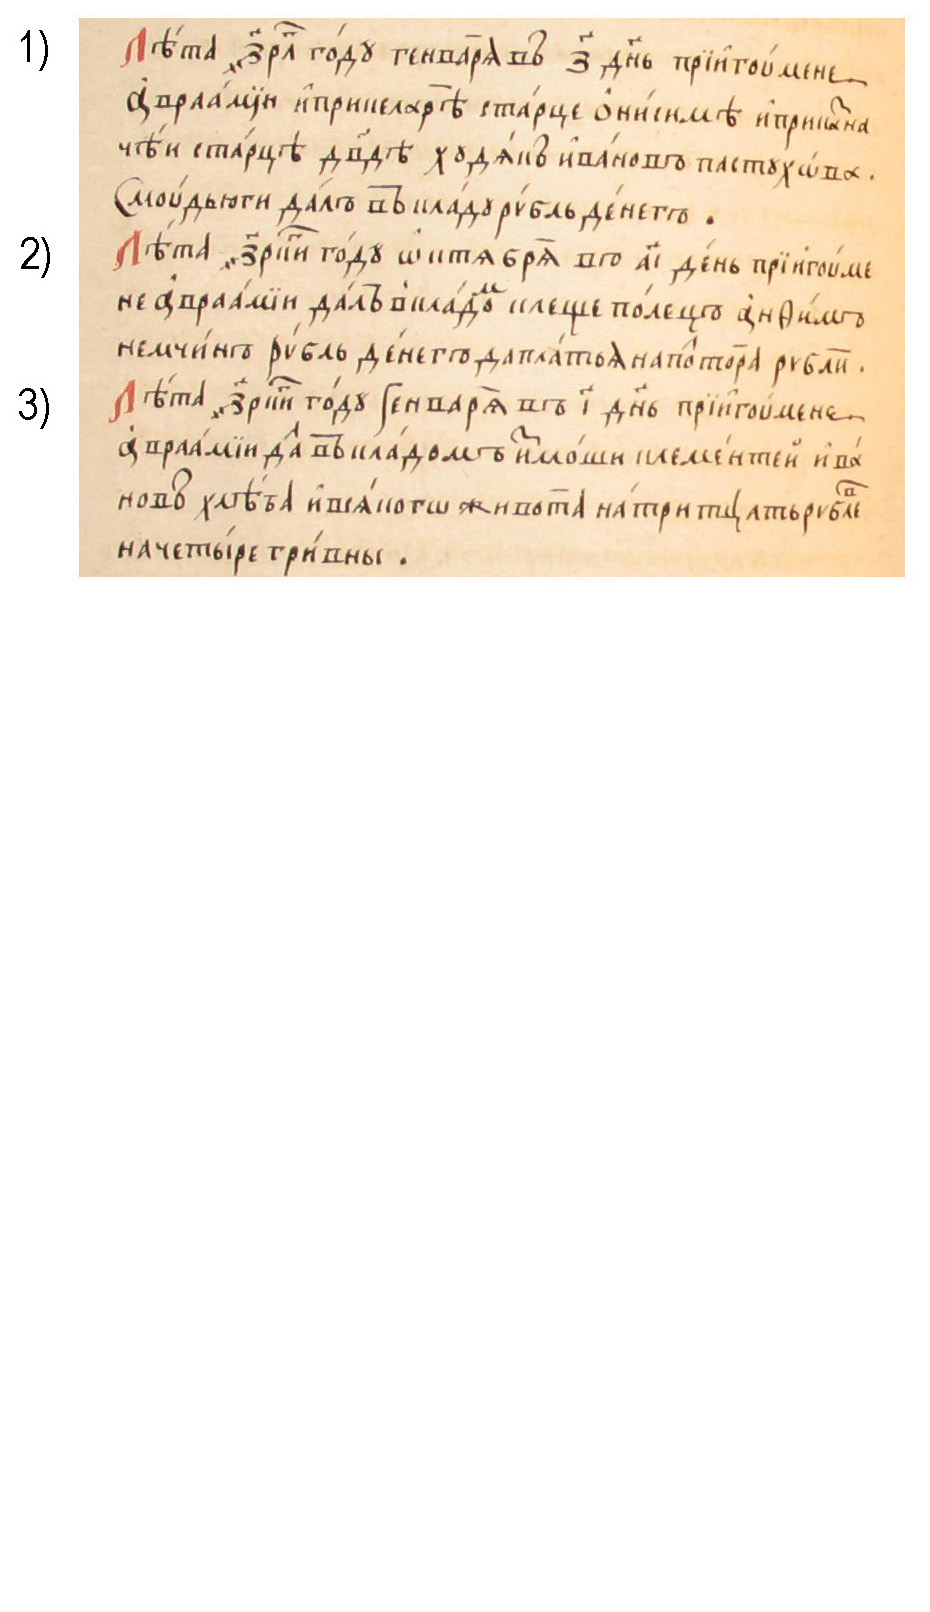 1) Лѣта ҂зрл҃ году генваря въ з҃ днь прїигоумене
авраамїи иприкеларѣ старце онисимѣ ипрiказна
чѣи старцѣ дв҃дѣ ходякъ ивановъ пастухѡва.
Смоудьюги далъ въвкладу рубль денегъ.
2) Лѣта году ѡктября въ а҃і день прїигоуме
не авраамїи далъ вкладом клеще полецъ анѳимъ
немчинъ рубль денегъ даплатья наполтора рубли.
3) Лѣта году генваря въ і҃ днь прїигоумене
авраамїи дал въвкладомъ клементей ива
новъ хлѣба ивсякогѡ живота натритцать рублев
начетыре гривны.